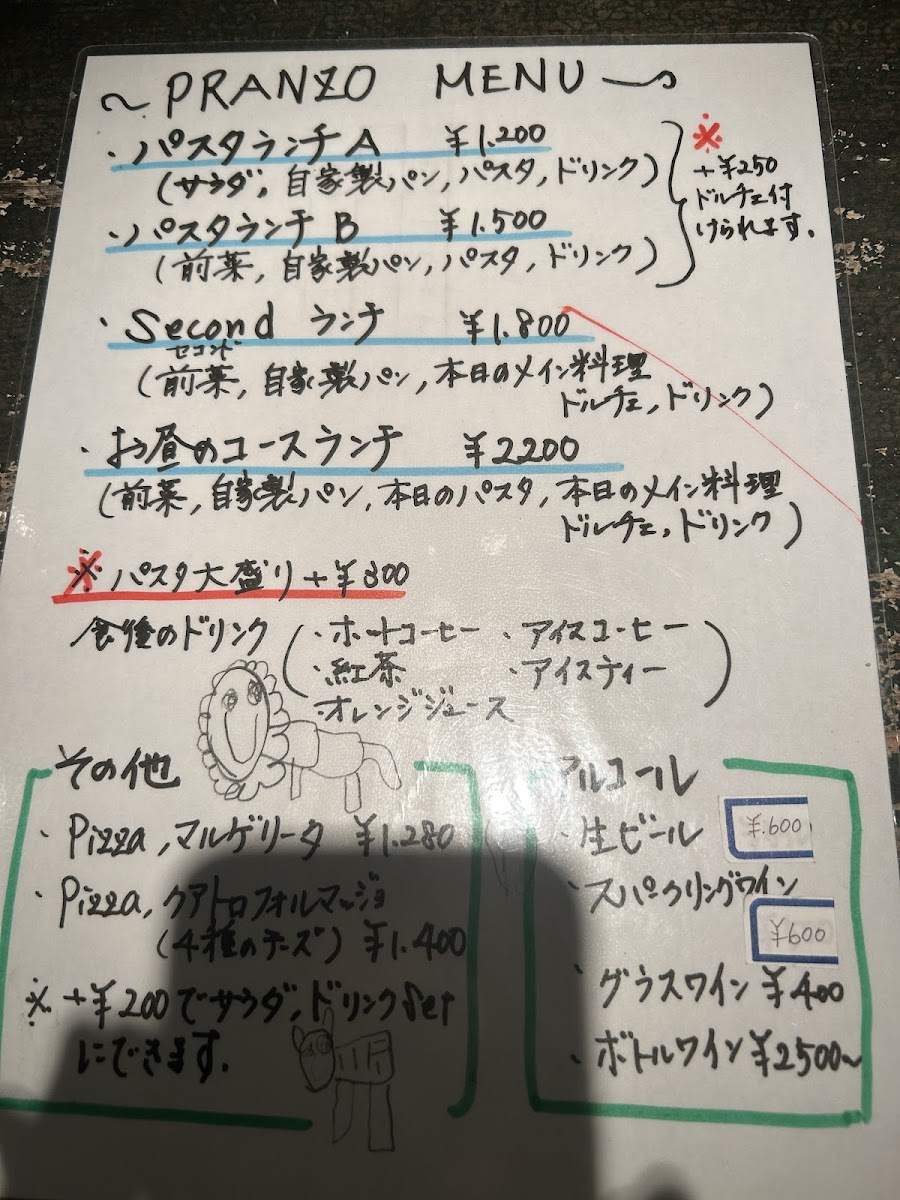 ~ PRANZO MENU ~
・パスタランチA ¥1.200
(サラダ, 自家製パン, パスタ, ドリンク)
・パスタランチB ¥1.500
(前菜, 自家製パン, パスタ, ドリンク)
※
+¥250
ドルチェ付
けられます。
・Second ランチ ¥1.800
セコンド
(前菜, 自家製パン, 本日のメイン料理
ドルチェ, ドリンク)
・お昼のコースランチ ¥2200
(前菜, 自家製パン, 本日のパスタ, 本日のメイン料理
ドルチェ, ドリンク)
※ パスタ大盛り +¥300
食後のドリンク
(・ホットコーヒー ・アイスコーヒー
・紅茶 ・アイスティー)
・オレンジジュース
その他
・Pizza, マルゲリータ ¥1.280
・Pizza, クアトロフォルマッジョ
(4種のチーズ) ¥1.400
※ +¥200でサラダ, ドリンクSet
にできます.
アルコール
・生ビール ¥.600
・スパークリングワイン
¥600
・グラスワイン ¥400
・ボトルワイン ¥2500~